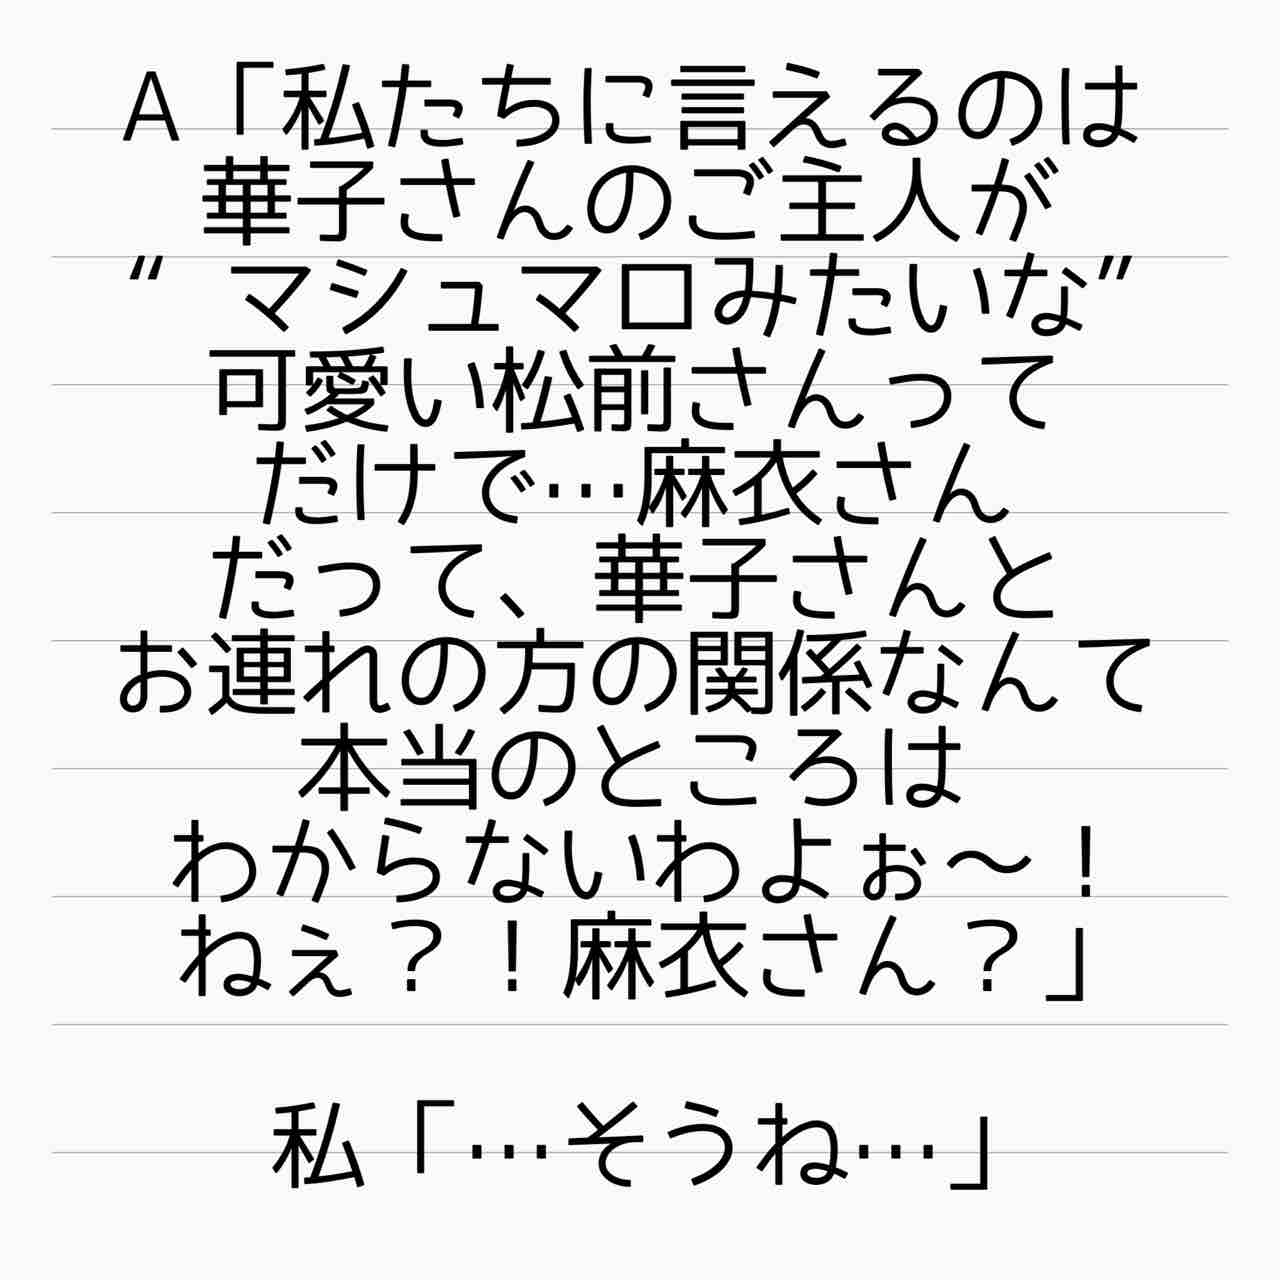 A「私たちに言えるのは
華子さんのご主人が
“マシュマロみたいな”
可愛い松前さんって
だけで…麻衣さん
だって、華子さんと
お連れの方の関係なんて
本当のところは
わからないわよぉ〜！
ねぇ？！麻衣さん？」
私「…そうね…」